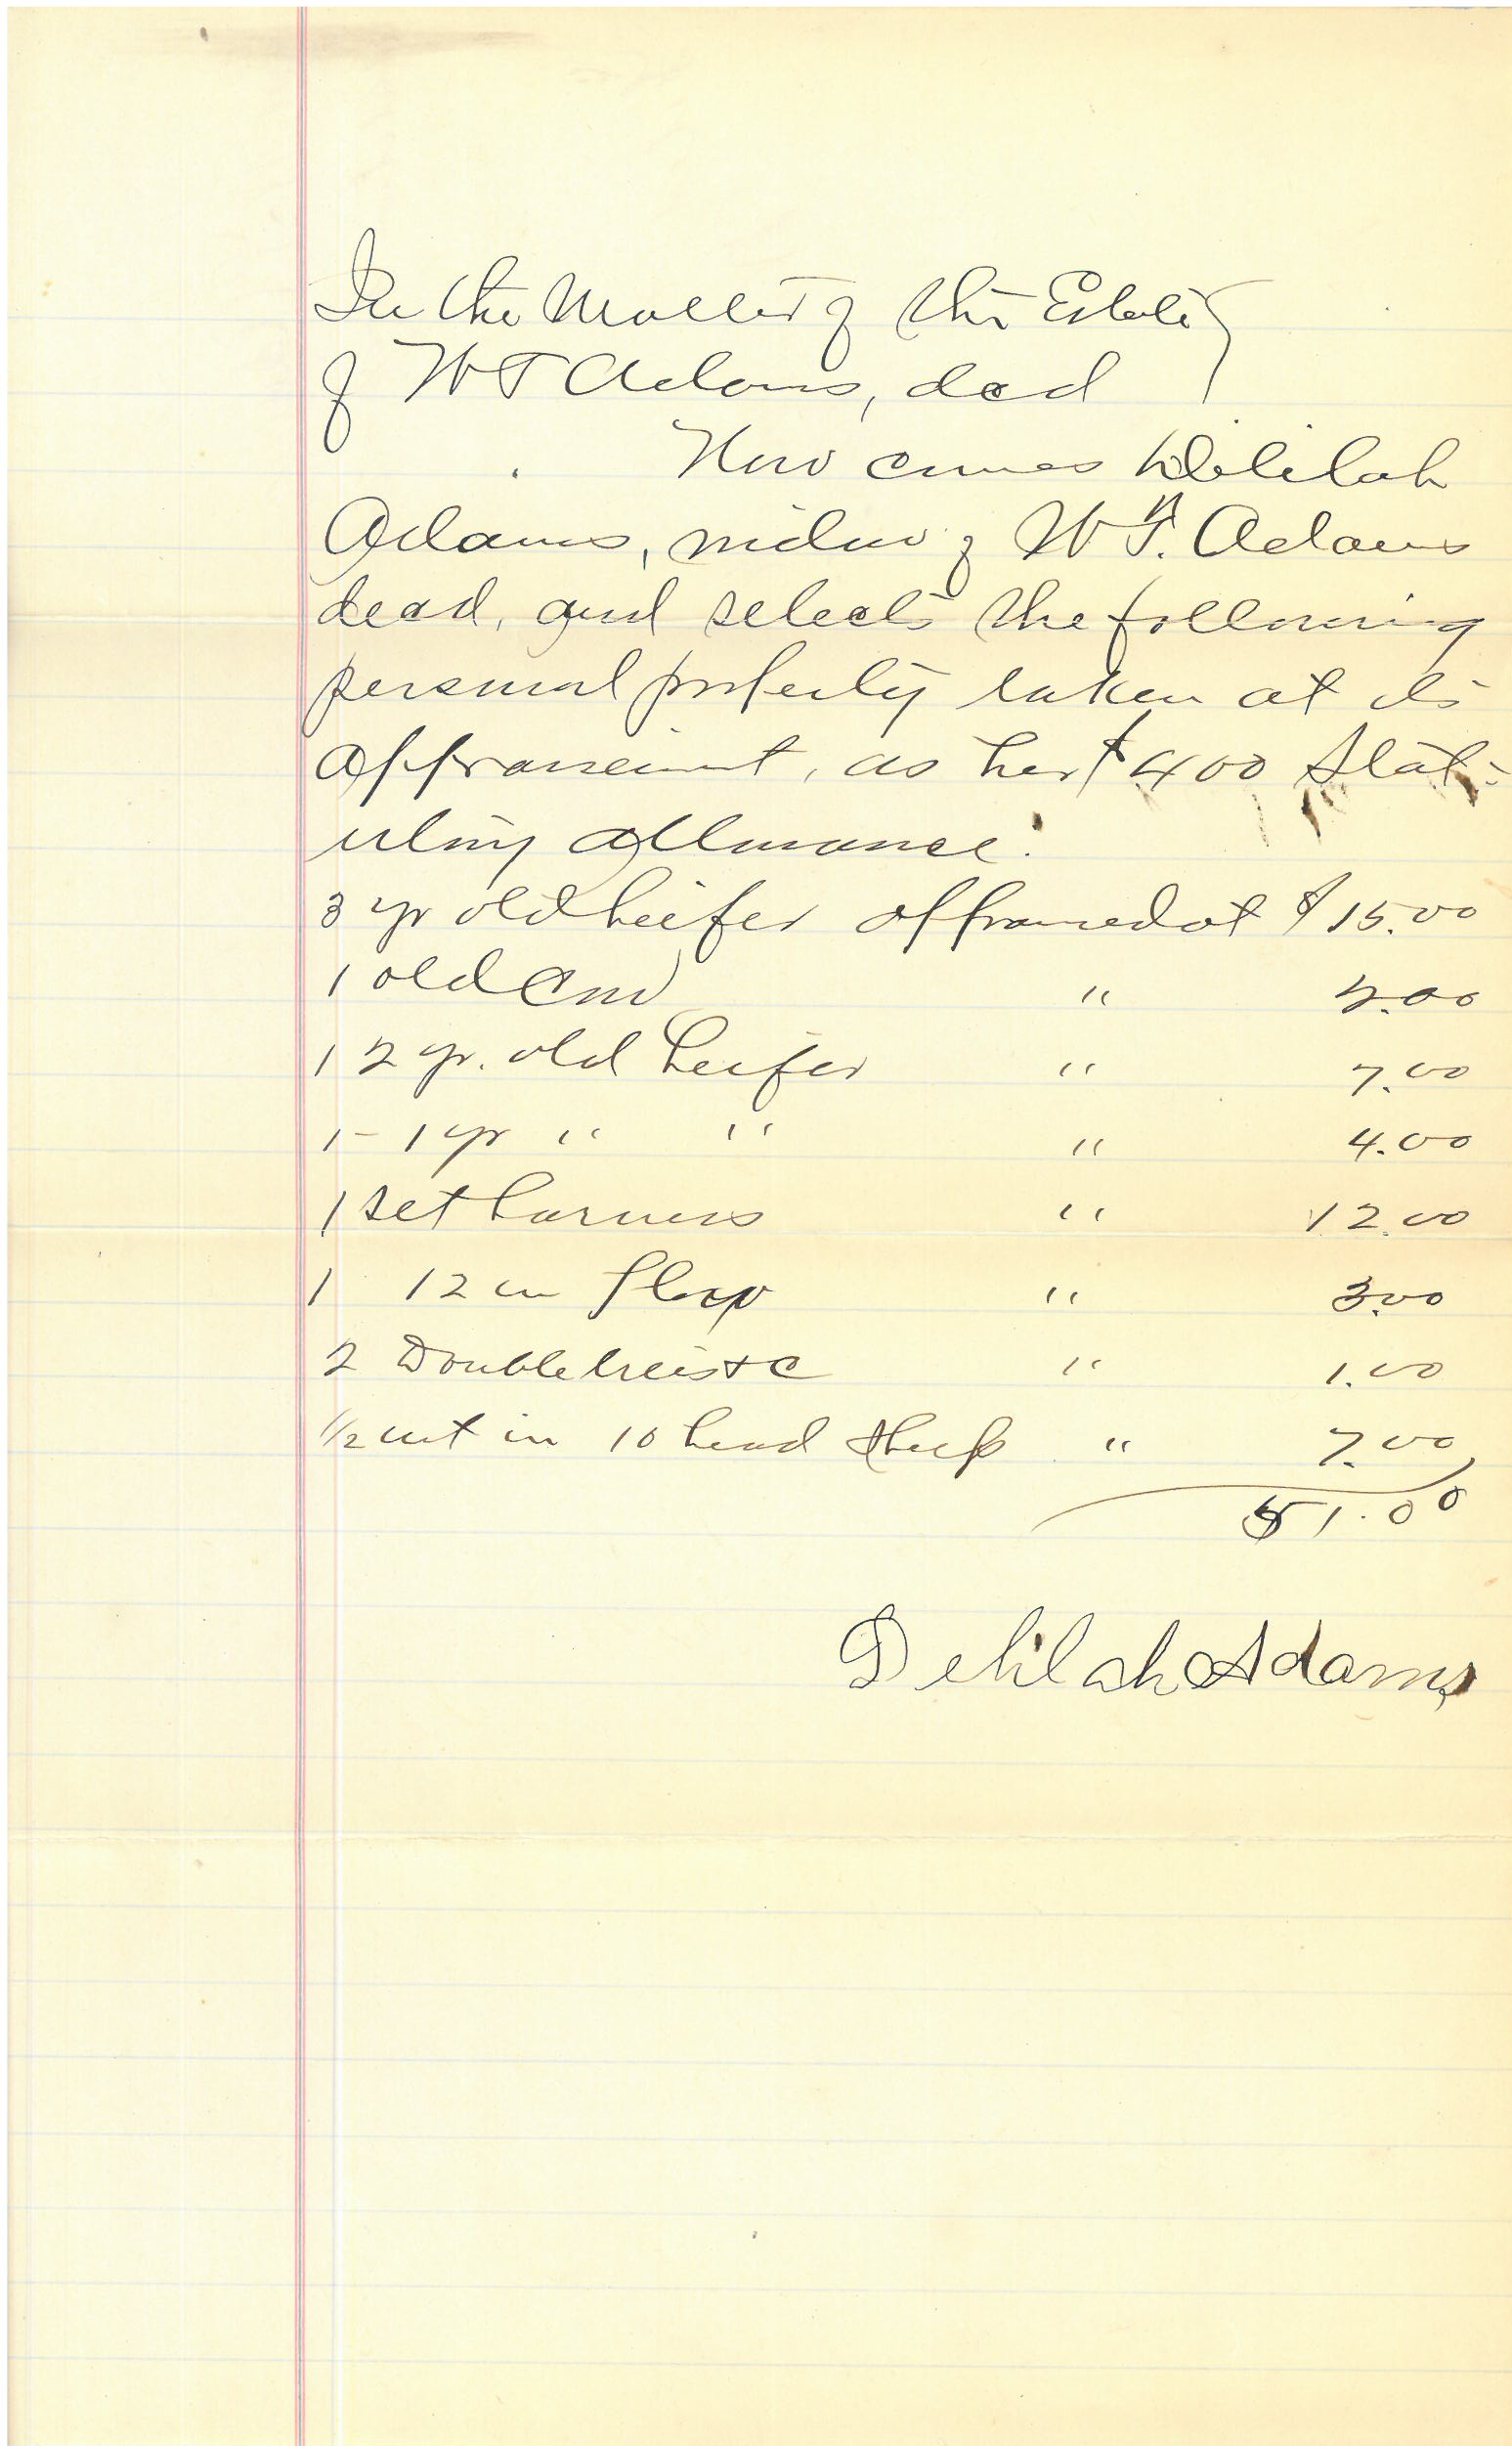 In the Matter of the Estate
of W T Adams, decd
Now comes Delilah
Adams, widow of W T. Adams
decd, and selects the following
personal property taken at its
appraisement, as her $400 Stat-
utory allowance:
3 yr old heifer appraised at $15.00
1 old Cow " 2.00
1 2 yr. old heifer " 7.00
1 - 1 yr " " " 4.00
1 set harness " 12.00
1 12 in plow " 3.00
2 Doubletrees &c " 1.00
1/2 int in 10 head sheep " 7.00
51.00
Delilah Adams